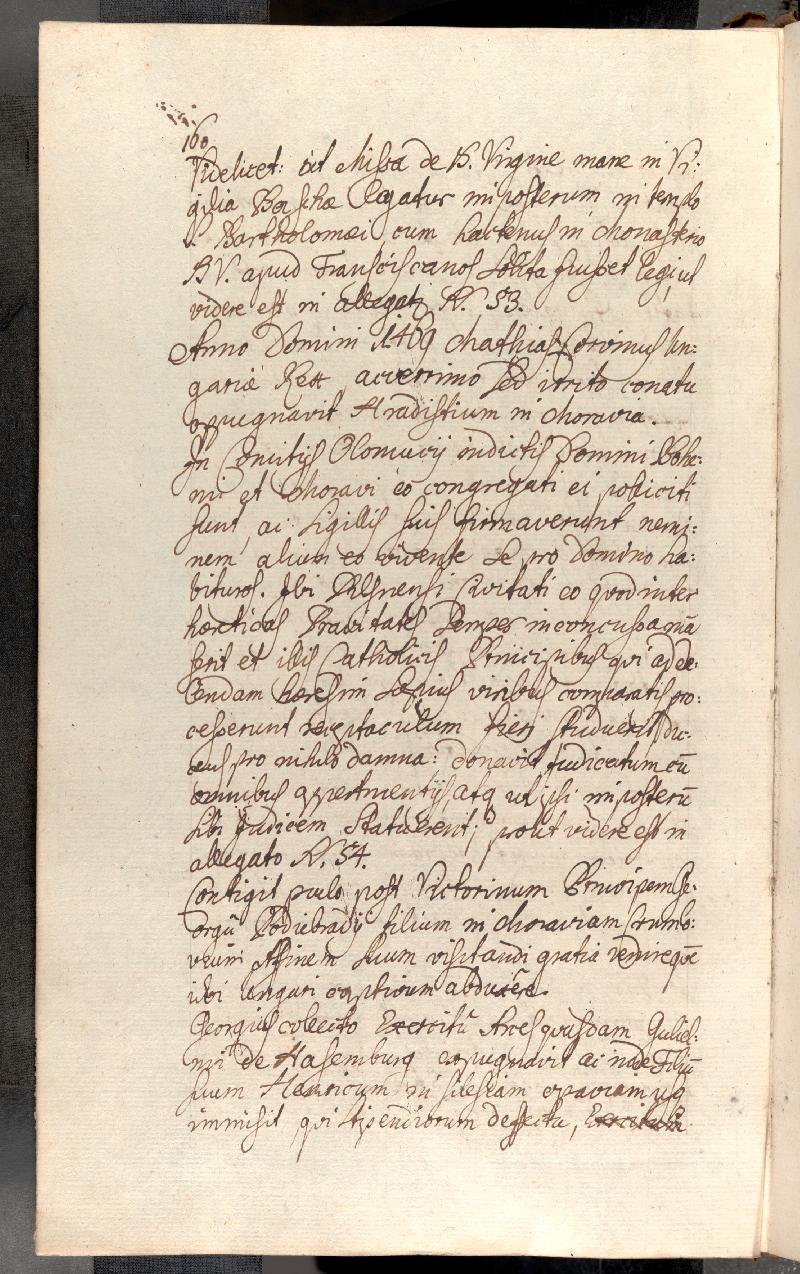 160
Videlicet: ut Missa de B. Virgine mane in Vi:
gilia Paschae legatur in posterum in templo
S. Bartholomaei, cum hactenus in Monasterio
B V. apud Franciscanos solita fuisset legi, ut
videre est in allegat N. 53.
Anno Domini 1469 Mathias Corvinus Un:
gariae Rex acverrimo sed irrito conatu
oppugnavit Hradistium in Moravia.
In Comitijs Olomucij indictis Domini Bohe:
mi et Moravi eo congregati ei polliciti
sunt, ac sigillis suis firmaverunt nemi:
nem alium eo vivente se pro Domino ha:
bituros. Ibi Plsnensi Civitati eo quod inter
haereticas Pravitates semper inconcussa man̄
serit et illis Catholicis Principibus qui ad de:
lendam haeresim saepius viribus comparatis pro:
cesserunt receptaculum fieri studuerit, du:
cens pro nihilo damna: donavit Judicatum cū
omnibus appertinentijs, atq ut ipsi in posterū
sibi Judicem statuerent; prout videre est in
allegato N. 54.
Contigit paulo post Victorinum Principem Ge:
orgij Podiebradij filium in Moraviam
Affinem suum visitandi gratia venireque
ibi Ungari captivum abducēre.
Georgius collecto Exercitū Arces quasdam Guliel:
mi de Hasemburg expugnavit ac inde Filiū
suum Henricum in Silesiam opaviam usq
immisit, qui stipendiorum defectu, Exercitum